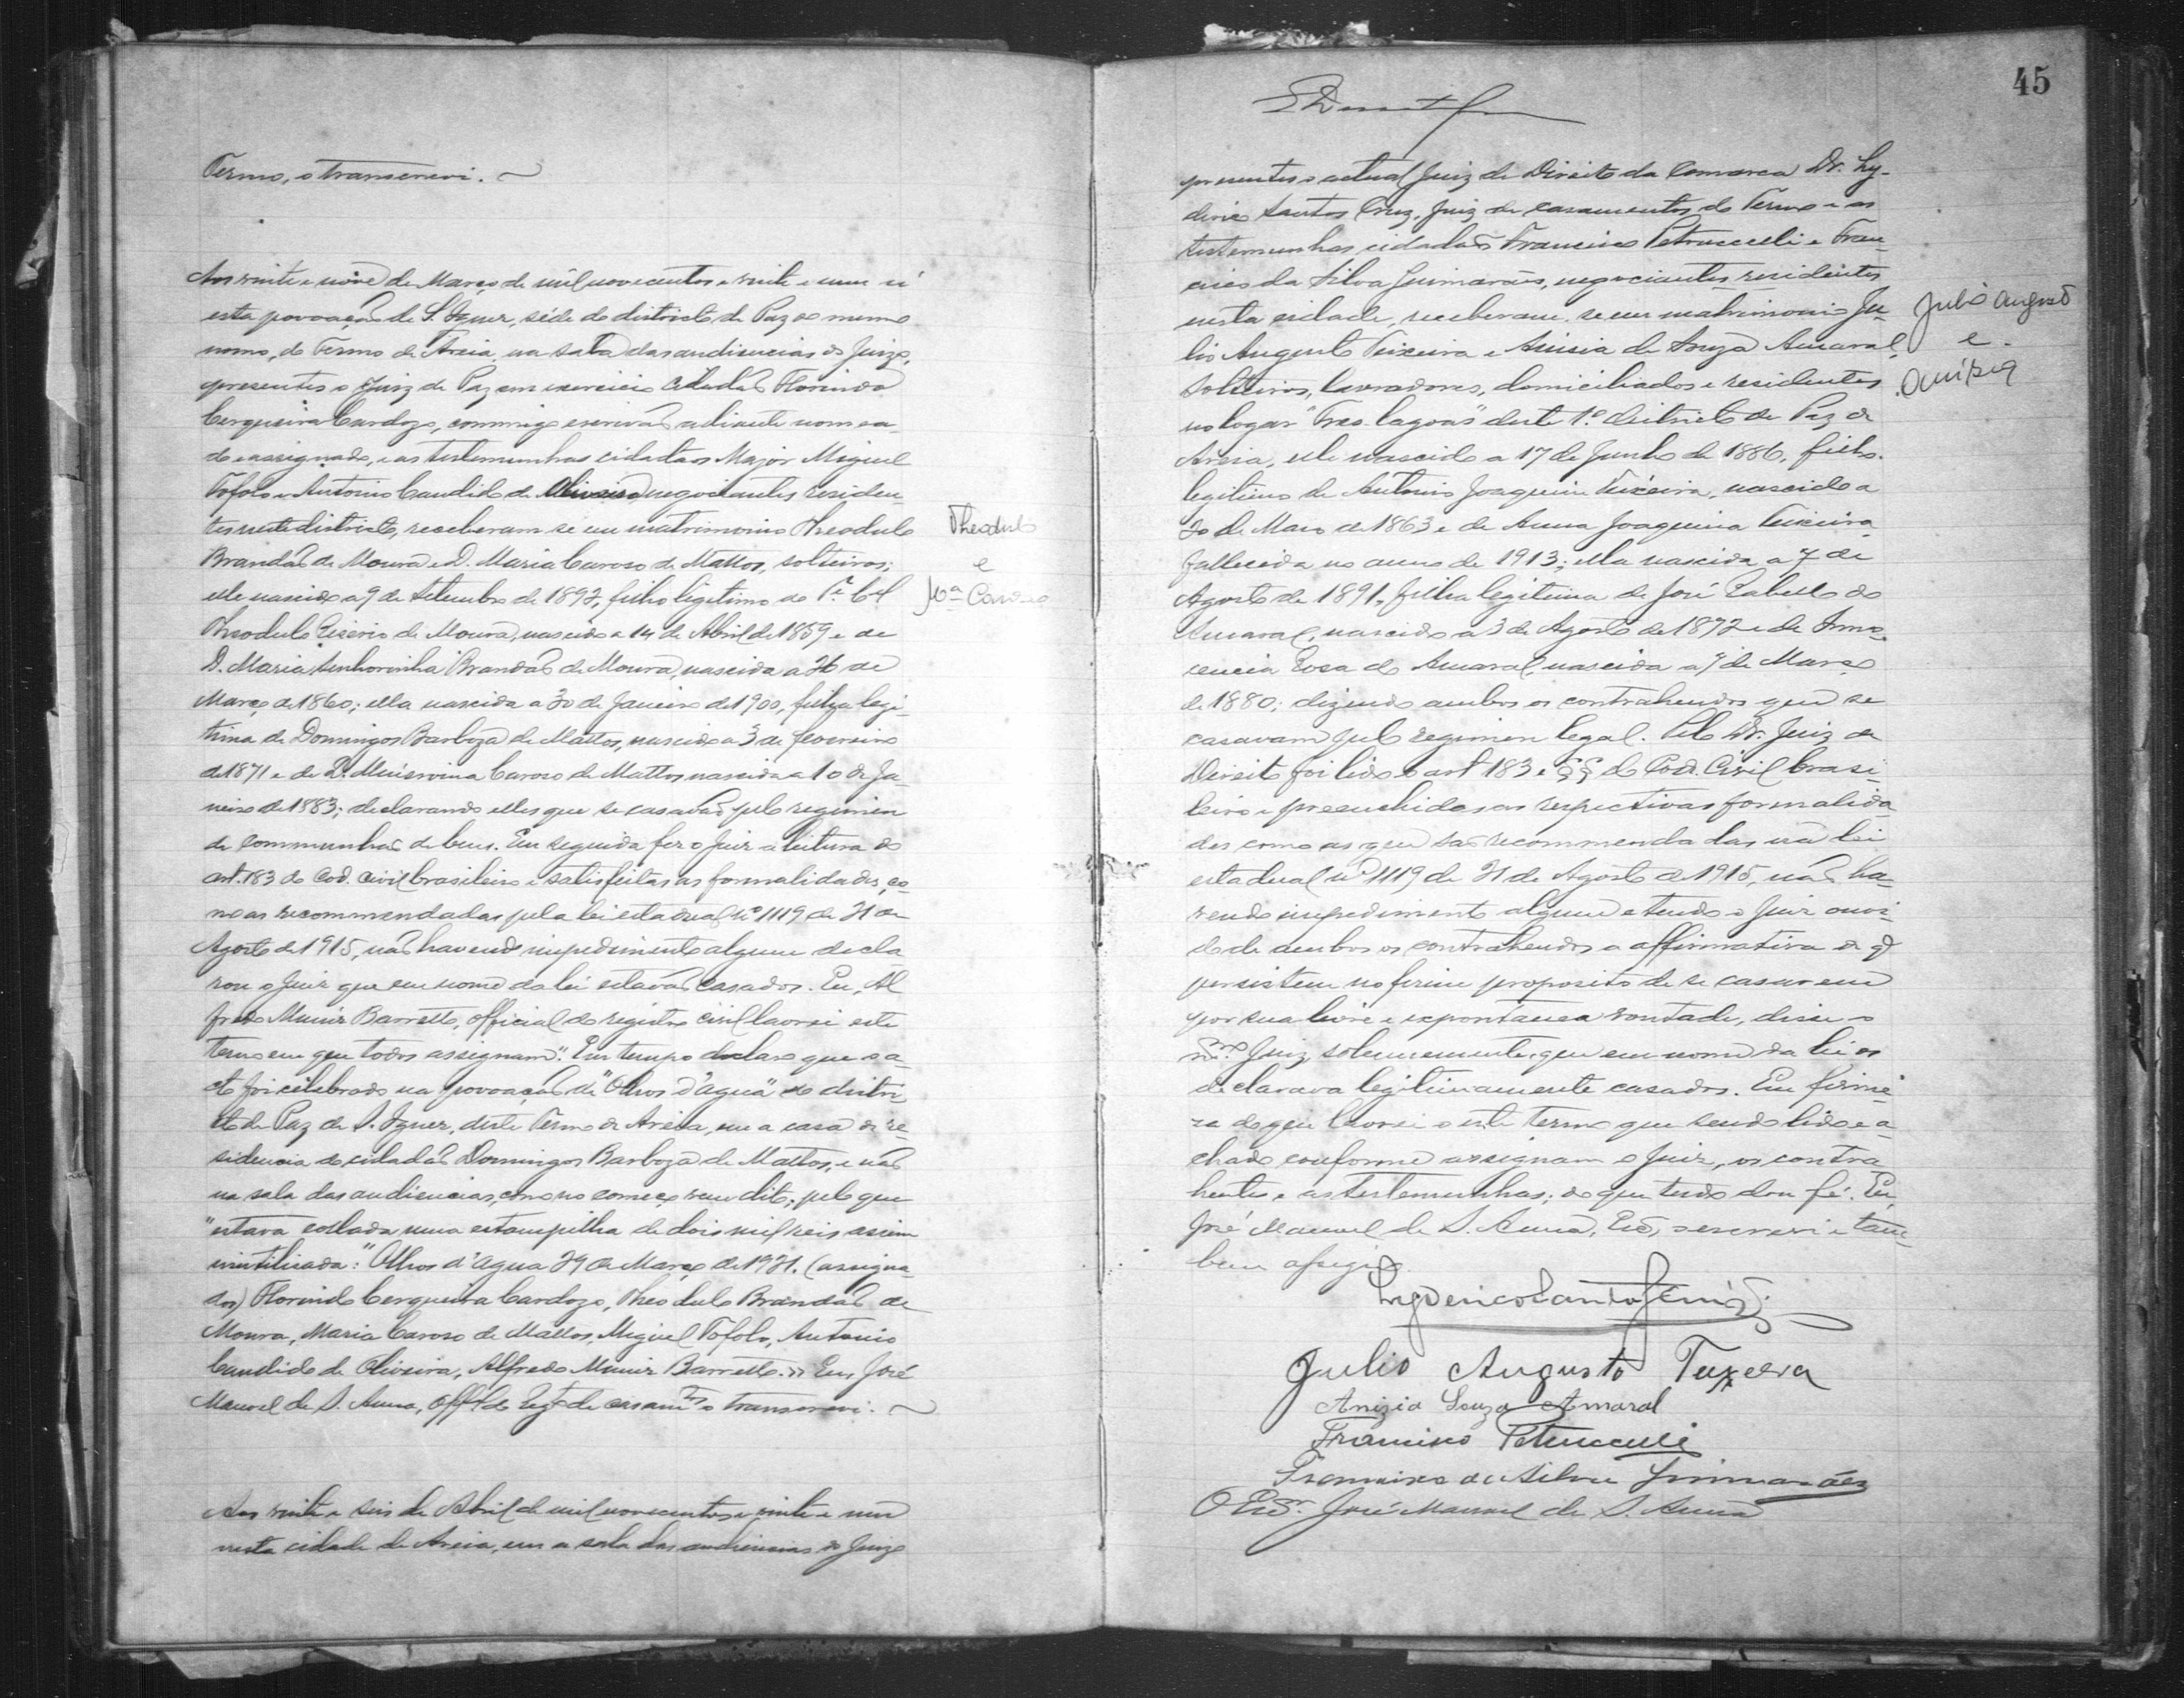 Termo, o transcrevi.
Aos vinte e nove de Março de mil novecentos e vinte e um n'
esta povoação de S. Ignez, séde do districto de Paz do mesmo
nome, do Termo de Areia, na sala das audiencias do Juizo,
presentes o Juiz de Paz em exercicio cidadão Florindo
Cerqueira Cardozo, commigo escrivão adiante nomea-
do e assignado, e as testemunhas cidadãos Major Miguel
Tofolo e Antonio Candido de Oliveira negociantes residen-
tes neste districto, receberam-se em matrimonio Theodulo
Brandão de Moura e D. Maria Caroso de Mattos, solteiros;
elle nascido a 9 de Setembro de 1892, filho legitimo do
Theodulo Liserio de Moura, nascido a 14 de Abril de 1859 e de
D. Maria Senhorinha Brandão de Moura, nascida a 26 de
Março de 1860; ella nascida a 30 de Janeiro de 1900, filha legi-
tima de Domingos Barboza de Mattos, nascido a 3 de fevereiro
de 1871 e de D. Caroso de Mattos nascida a 10 de Ja-
neiro de 1883; declarando elles que se casavão pelo regimen
de communhão de bens. Em seguida fez o Juiz a leitura do
art. 183 do Cod. Civil brasileiro e satisfeitas as formalidades, co-
mo as recommendadas pela lei estadual nº 1119 de 21 de
Agosto de 1915, não havendo impedimento algum decla
rou o Juiz que em nome da lei estavão casados. Eu, Al
fredo Muniz Barretto, official do registro civil lavrei este
termo em que todos assignam". Em tempo declaro que o a-
cto foi celebrado na povoação de "Olhos d'agua" do distri-
cto de Paz de S. Ignez, deste Termo de Areia, em a casa de re-
sidencia do cidadão Domingos Barboza de Mattos, e não
na sala das audiencias, como no começo vem dito; pelo que
"estava collada uma estampilha de dois mil reis assim
inutilisada: "Olhos d'agua 29 de Março de 1921. (assigna-
dos) Florindo Cerqueira Cardozo, Theodulo Brandão de
Moura, Maria Caroso de Mattos, Miguel Tofolo, Antonio
Candido de Oliveira, Alfredo Muniz Barretto.» Eu, José
Manoel de S. Anna, Offal do Regº de casamtos o transcrevi.
Aos vinte e seis de Abril de mil novecentos e vinte e um
nesta cidade de Areia, em a sala das audiencias do Juizo
Theodulo
e
Mª Caroso
45
presentes o actual Juiz de Direito da Comarca Dr. Ly-
derico Santos Cruz, Juiz de casamentos do Termo e as
testemunhas cidadãos Francisco Petruccelli e Fran-
cisco da Silva Guimarães, negociantes residentes
nesta cidade, receberam-se em matrimonio Ju-
lio Augusto Teixeira e Anisia de Souza Amaral,
solteiros, lavradores, domiciliados e residentes
no logar "Tres lagoas" deste 1º districto de Paz de
Areia, elle nascido a 17 de Junho de 1886, filho
legitimo de Antonio Joaquim Teixeira, nascido a
20 de Maio de 1863 e de Anna Joaquina Teixeira
fallecida no anno de 1913; ella nascida a 7 de
Agosto de 1891, filha legitima de José Rabello do
Amaral, nascido a 3 de Agosto de 1872 e de Inno-
cencia Rosa do Amaral, nascida a 7 de Março
de 1880; dizendo ambos os contrahendos que se
casavam pelo regimen legal. Pelo Dr. Juiz de
Direito foi lido o art 183 e §§ do Cod. Civil brasi-
leiro e preenchidas as respectivas formalida-
des como as que são recommendadas na lei
estadual nº 1119 de 21 de Agosto de 1915, não ha-
vendo impedimento algum e tendo o Juiz ouvi-
do de ambos os contrahendos a affirmativa de q̃
persistem no firme proposito de se casarem
por sua livre e expontanea vontade, disse o
mmo Juiz solemnemente, que em nome da lei os
declarava legitimamente casados. Em firme-
za do que lavrei o este termo que sendo lido e a-
chado conforme assignam o Juiz, os contra-
hentes e as testemunhas; do que tudo dou fé. Eu,
José Manoel de S. Anna, Escm, o escrevi e tam-
bem assigno
Lyderico Santos Cruz
Julio Augusto Teixeira
Anizia Souza Amaral
Francisco Petruccelli
Francisco da Silva Guimarães
O Escm. José Manoel de S. Anna
Julio Augusto
e
Anizia